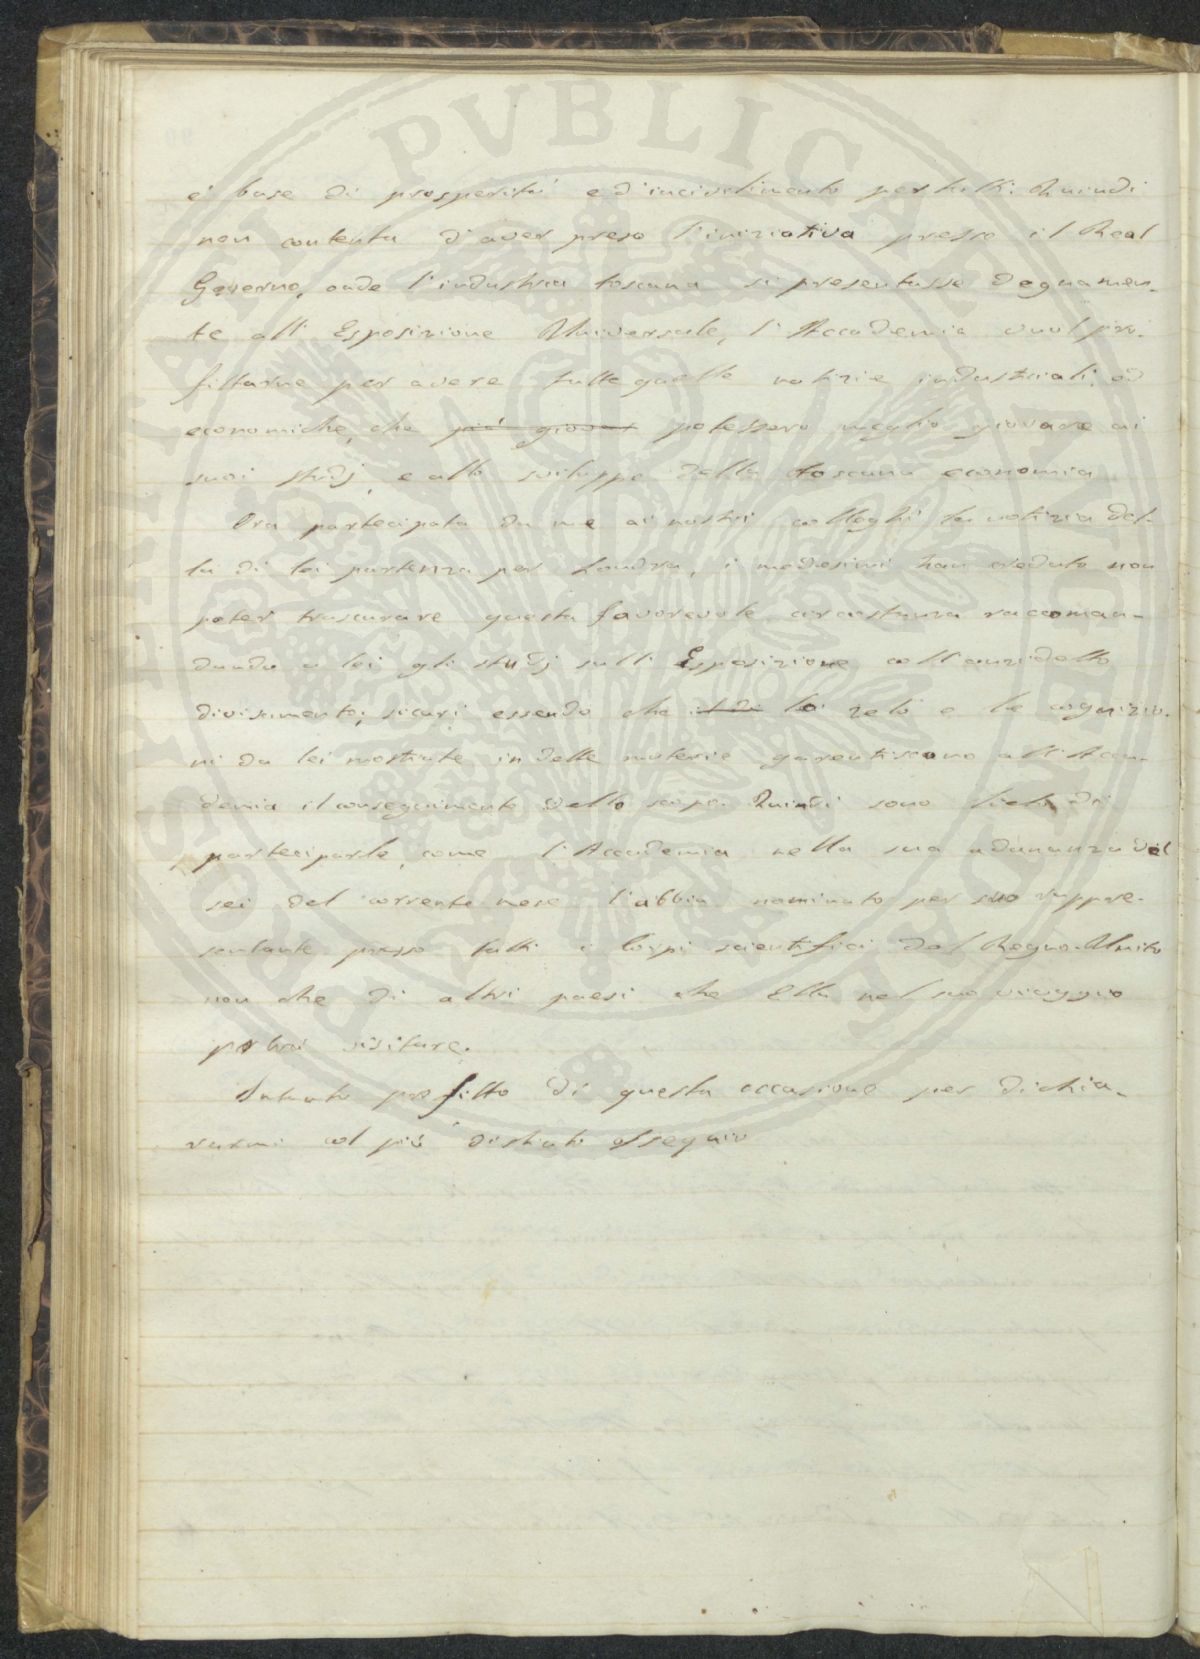 è base di prosperità e d'incivilimento per tutti. Quindi
non contenta d'aver preso l'iniziativa presso il Real
Governo, onde l'industria toscana si presentasse degnamen-
te all'Esposizione Universale, l'Accademia vuol pro-
fittarne per avere tutte quelle notizie industriali, ed
economiche, che più giovar potessero meglio giovare ai
suoi studj, e allo sviluppo della toscana economia
Ora partecipata da me ai nostri colleghi la notizia del-
la di lei partenza per Londra, i medesimi han creduto non
poter trascurare questa favorevole circostanza raccoman-
dando a lei gli studj sull'Esposizione coll'anzidetto
divisamento; sicuri essendo che il di lei zelo e le cognizio-
ni da lei mostrate in dette materie garantiscono all'Acca-
demia il conseguimento dello scopo. Quindi sono lieto di
parteciparle, come l'Accademia nella sua adunanza del
sei del corrente mese l'abbia nominato per suo rappre-
sentante presso tutti i Corpi scientifici del Regno-Unito
non che di altri paesi che Ella nel suo viaggio
potrà visitare.
Intanto profitto di questa occasione per dichia-
rarmi col più distinto ossequio
PVBLICAE
PROSPERITATI